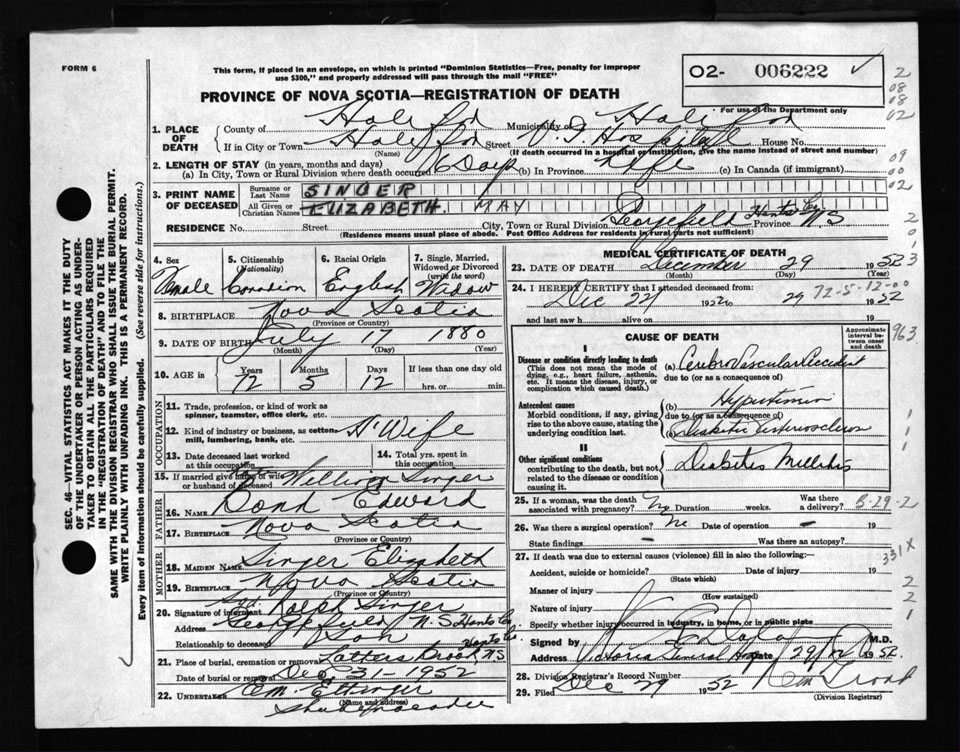 FORM 6
This form, if placed in an envelope, on which is printed "Dominion Statistics—Free, penalty for improper
use $300," and properly addressed will pass through the mail "FREE"
O2- 006222 ✓
For use of the Department only
PROVINCE OF NOVA SCOTIA—REGISTRATION OF DEATH
1. PLACE OF DEATH
County of Halifax Municipality of Halifax
If in City or Town Halifax Street V. G. Hospital House No.
(Name) (If death occurred in a hospital or institution, give the name instead of street and number)
2. LENGTH OF STAY (in years, months and days)
(a) In City, Town or Rural Division where death occurred 6 Days (b) In Province Life (c) In Canada (if immigrant)
3. PRINT NAME OF DECEASED
Surname or Last Name SINGER
All Given or Christian Names ELIZABETH. MAY
RESIDENCE No. Street City, Town or Rural Division Georgefield Hants Co. Province N.S
(Residence means usual place of abode. Post Office Address for residents in rural parts not sufficient)
4. Sex Female
5. Citizenship (Nationality) Canadian
6. Racial Origin English
7. Single, Married, Widowed or Divorced (write the word) Widow
8. BIRTHPLACE Nova Scotia
(Province or Country)
9. DATE OF BIRTH July 17 1880
(Month) (Day) (Year)
10. AGE in Years 72 Months 5 Days 12 If less than one day old
hrs. or min.
OCCUPATION
11. Trade, profession, or kind of work as
spinner, teamster, office clerk, etc.
12. Kind of industry or business, as cotton-
mill, lumbering, bank, etc. H'Wife
13. Date deceased last worked
at this occupation
14. Total yrs. spent in
this occupation
15. If married give name of wife
or husband of deceased William Singer
FATHER
16. NAME Bond Edward
17. BIRTHPLACE Nova Scotia
(Province or Country)
MOTHER
18. MAIDEN NAME Singer Elizabeth
19. BIRTHPLACE Nova Scotia
(Province or Country)
20. Signature of informant Ralph Singer
Address Georgefield N. S Hants Co
Relationship to deceased Son
21. Place of burial, cremation or removal Latties Brook, NS Hants Co
Date of burial or removal Dec 31 - 1952
22. UNDERTAKER E M. Ettinger
(Name and address)
Shubenacadie
MEDICAL CERTIFICATE OF DEATH
23. DATE OF DEATH December 29 1952
(Month) (Day) (Year)
24. I HEREBY CERTIFY that I attended deceased from:
72-5-12-00
Dec 22 1952 to 29 1952
and last saw h alive on 19
CAUSE OF DEATH
Approximate interval between onset and death
I
Disease or condition directly leading to death
(This does not mean the mode of
dying, e.g., heart failure, asthenia,
etc. It means the disease, injury, or
complication which caused death.)
(a) CerebroVascular Accident
due to (or as a consequence of)
Antecedent causes
Morbid conditions, if any, giving
rise to the above cause, stating the
underlying condition last.
(b) Hypertension
due to (or as a consequence of)
(c) Diabetic Arteriosclerosis
II
Other significant conditions
contributing to the death, but not
related to the disease or condition
causing it.
Diabetes Mellitis
25. If a woman, was the death
associated with pregnancy? No Duration weeks. Was there a delivery?
B-29-2
26. Was there a surgical operation? No Date of operation - 19
State findings - Was there an autopsy?
331X
27. If death was due to external causes (violence) fill in also the following:—
Accident, suicide or homicide? Date of injury 19
(State which)
Manner of injury
(How sustained)
Nature of injury
Specify whether injury occurred in industry, in home, or in public place
Signed by M.D.
Address Victoria General Hosp Date 29/12 1952.
28. Division Registrar's Record Number
29. Filed Dec 29 1952
(Division Registrar)
SEC. 46—VITAL STATISTICS ACT MAKES IT THE DUTY
OF THE UNDERTAKER OR PERSON ACTING AS UNDER-
TAKER TO OBTAIN ALL THE PARTICULARS REQUIRED
IN THE "REGISTRATION OF DEATH" AND TO FILE THE
SAME WITH THE DIVISION REGISTRAR WHO SHALL ISSUE THE BURIAL PERMIT.
WRITE PLAINLY WITH UNFADING INK. THIS IS A PERMANENT RECORD.
Every item of information should be carefully supplied. (See reverse side for instructions.)
2
08
08
02
09
02
2
0
1
3
963
1
1
2
2
1